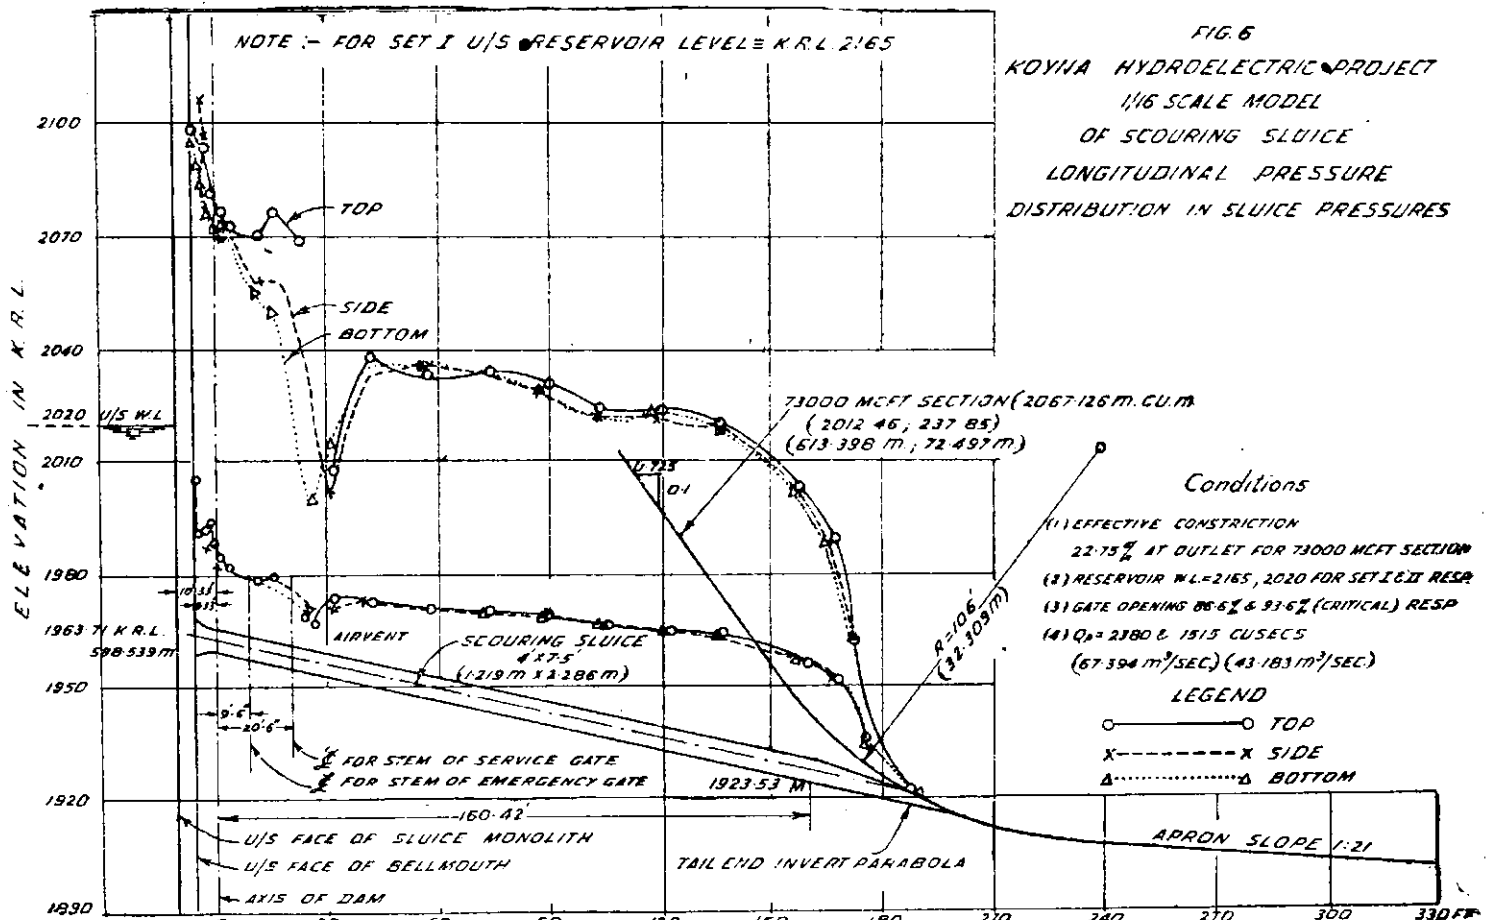 NOTE :- FOR SET I U/S RESERVOIR LEVEL = K.R.L. 2165
FIG. 6
KOYNA HYDROELECTRIC PROJECT
1/16 SCALE MODEL
OF SCOURING SLUICE
LONGITUDINAL PRESSURE
DISTRIBUTION IN SLUICE PRESSURES
ELEVATION IN K.R.L.
2100
2070
2040
2020 U/S W.L
2010
1980
1963.71 K.R.L.
598.539 m
1950
1920
1890
TOP
SIDE
BOTTOM
73000 MCFT SECTION (2067.126 m. CU.m
(2012.46; 237.85)
(613.398 m; 72.497 m)
0.725
0.1
R=106'
(32.309 m)
Conditions
(1) EFFECTIVE CONSTRICTION
22.75% AT OUTLET FOR 73000 MCFT SECTION
(2) RESERVOIR W.L=2165, 2020 FOR SET I & II RESP.
(3) GATE OPENING 86.6% & 93.6% (CRITICAL) RESP
(4) Qp= 2380 & 1515 CUSECS
(67.394 m³/SEC) (43.183 m³/SEC)
LEGEND
TOP
SIDE
BOTTOM
10.33'
AIRVENT
SCOURING SLUICE
4'X7.5'
(1.219 m X 2.286 m)
9'.6"
20'.6"
℄ FOR STEM OF SERVICE GATE
℄ FOR STEM OF EMERGENCY GATE
1923.53 M
160.42'
U/S FACE OF SLUICE MONOLITH
U/S FACE OF BELLMOUTH
AXIS OF DAM
TAIL END INVERT PARABOLA
APRON SLOPE 1:21
180 210 240 270 300 330 FT